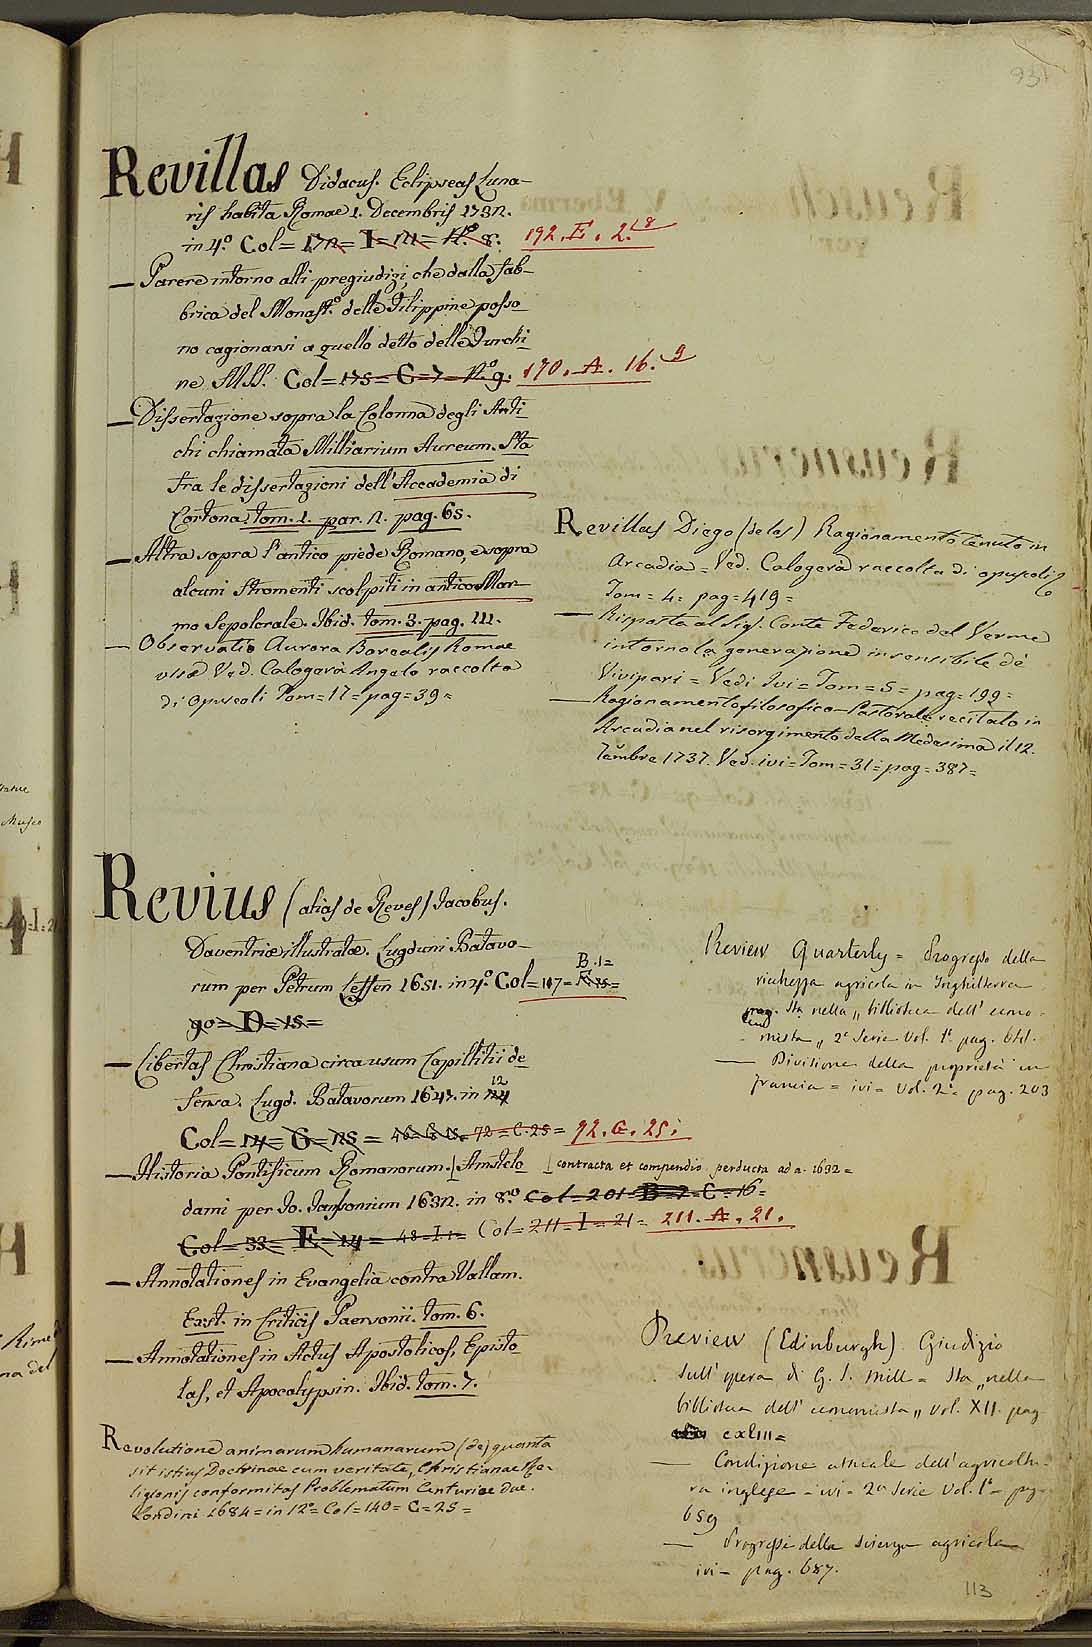 93
Revillas Didacus. Eclipseas Luna-
ris habita Romae 1. Decembris 1732.
in 4.º Col= 172= I= 111= N.º 8. 192. E. 2.18
— Parere intorno alli pregiudizi, che dalla fab-
brica del Monast.º delle Filippine posso
no cagionarsi a quello detto delle Turchi-
ne MSS. Col= 175= G= 7= N.º 9. 170. A. 16. 9
— Dissertazione sopra la Colonna degli Anti
chi chiamata Milliarium Aureum. Sta
tra le dissertazioni dell'Accademia di
Cortona. tom. 1. par. 2. pag. 65.
— Altra sopra l'antico piede Romano, e sopra
alcuni Stromenti scolpiti in antico Mar-
mo Sepolcrale. Ibid. tom. 3. pag. 111.
— Observatio Aurora Borealis Romae
visae Ved. Calogerà Angelo raccolta
di Opuscoli Tom= 17= pag= 39=
Revillas Diego (de los) Ragionamento tenuto in
Arcadia= Ved. Calogerà raccolta di opuscoli
Tom= 4= pag= 419=
— Risposta al Sig. Conte Federico dal Verme
intorno la generazione insensibile de'
Vivipari= Vedi Ivi= Tom= 5= pag= 199=
— Ragionamento filosofico-Pastorale recitato in
Arcadia nel risorgimento della Medesima il 12.
7embre 1737. Ved. ivi= Tom= 31= pag= 387=
Revius (alias de Reves) Jacobus.
Daventriae illustratae. Lugduni Batavo-
rum per Petrum Leffen 1651. in 4.º Col= 107= B.1=
90= D= 15=
— Libertas Christiana circa usum Capillitii de
fensa. Lugd. Batavorum 1647. in 12
Col= 114= G= 25= 46= 8 15= 72= C. 25= 72. C. 25.
— Historia Pontificum Romanorum. Amstelo contracta et compendio perducta ad a. 1632=
dami per Jo. Janssonium 1632. in 8.º Col= 201= B= 2= C= 16=
Col= 33= E= 14= 48= I. 1= Col= 211= I= 21= 211. A. 21.
— Annotationes in Evangelia contra Vallam.
Exst. in Criticis Paersonii. tom. 6.
— Annotationes in Actus Apostolicos, Episto
las, et Apocalypsin. Ibid. tom. 7.
Revolutione animarum humanarum (de) quanta
sit istius Doctrinae cum veritate, Christianae Re-
ligionis conformitas Problematum Centuriae duae.
Londini 1684= in 12º= Col= 140= C= 25=
Review Quarterly= Progresso della
ricchezza agricola in Inghilterra
Sta nella „ biblioteca dell' econo-
mista „ 2ª Serie Vol. 1º pag. 641.
— Divisione della proprietà in
Francia= ivi= Vol. 2º pag. 203
Review (Edinburgh). Giudizio
sull'opera di G. S. Mill= Sta „ nella
biblioteca dell' economista „ Vol. XII. pag
CXLIII=
— Condizione attuale dell'agricoltu-
ra inglese - ivi= 2ª Serie Vol. 1º- pag.
659
— Progressi della scienza agricola
ivi- pag. 687.
113